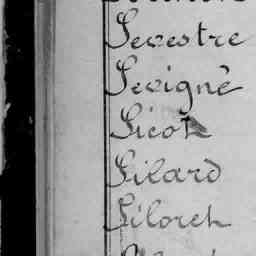 Sevestre
Sevigné
Sicot
Silard
Siloret